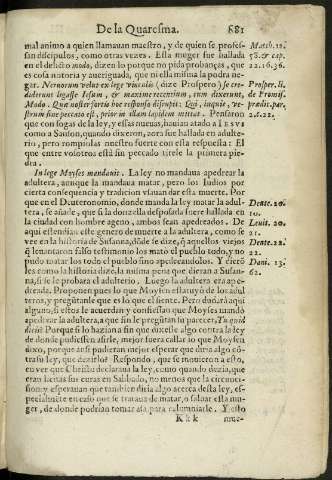 De la Quaresma. 681
mal animo a quien llamauan maestro, y de quien se profes-
san discipulos, como otras vezes. Esta muger fue hallada
en el delicto modo, dizen lo porque no pida probanças, que
es cosa notoria y aueriguada, que ni ella misma la podra ne-
gar. Neruorum velut ex lege vinculis (dize Prospero) se cre-
diderunt ligasse Iesum, & maxime rectorum, cum dixerunt,
Modo. Quæ nostri fortis hoc responso disrupit: Qui, inquit, ve-
strum sine peccato est, prior in illam lapidem mittat. Pensaron
que con sogas de la ley, y essas nueuas, hauian atado a IESVS
como a Sanson, quando dixeron, aora fue hallada en adulte-
rio, pero rompiolas nuestro fuerte con esta respuesta: El
que entre vosotros està sin peccado tirele la primera pie-
dra.
In lege Moyses mandauit. La ley no mandaua apedrear la
adultera, aunque la mandaua matar, pero los Iudios por
cierta consequencia y tradicion vsauan dar esta muerte. Por
que en el Deuteronomio, donde manda la ley matar la adul-
tera, se añade, que si la donzella desposada fuere hallada en
la ciudad con hombre ageno, ambos sean apedreados. De
aqui estendian este genero de muerte a la adultera, como se
vee en la historia de Susanna, dõde se dize, q̃ aquellos viejos
q̃ leuantaron falso testimonio los matò el pueblo todo, y no
pudo matar los todo el pueblo sino apedreandolos. Y dieró
les como la historia dize, la misma pena que dieran a Susan-
na, si se le probara el adulterio. Luego la adultera era ape-
dreada. Proponen pues lo que Moysen estatuyò de los adul-
teros, y preguntanle que es lo que el siente. Pero dudarà aqui
alguno, si estos le acuerdan y confiessan que Moyses mandò
apedrear la adultera, a que fin le preguntan su parecer, Tu quid
dicis? Porque si lo hazian a fin que dixesse algo contra la ley
de donde pudiessen asirle, mejor fuera callar lo que Moysen
dixo, porque assi pudieran mejor esperar que diria algo có-
tra su ley, que dezirlo? Respondo, que se mouieron a esto,
en ver que Christo declaraua la ley, como quando dezia, que
eran licitas sus curas en Sabbado, no menos que la circunci-
sion: y esperauan que tambien diria algo acerca desta ley, es-
pecialmẽte en caso que se trataua de matar, o saluar esta mu-
ger, de donde podrian tomar asa para calumniarle. Y esto
Kkk mue-
Matth. 12.
38. & cap.
22. 16. 36.
Prosper. li.
de Promis.
& prædit. par.
2. c. 22.
Deute. 20.
10.
Leuit. 20.
21.
Deute. 22.
22.
Dani. 13.
62.